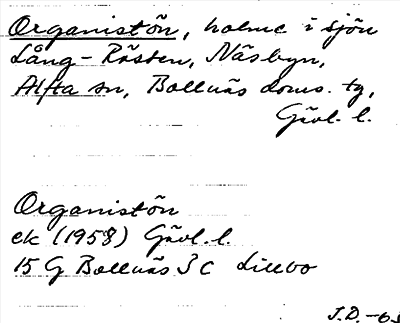 Organistön, holme i sjön
Lång-Rösten, Näsbyn,
Alfta sn, Bollnäs doms. tg,
Gävl. l.
Organistön
ek (1958) Gävl. l.
15 G Bollnäs 3 C Lillbo
J.D.-63